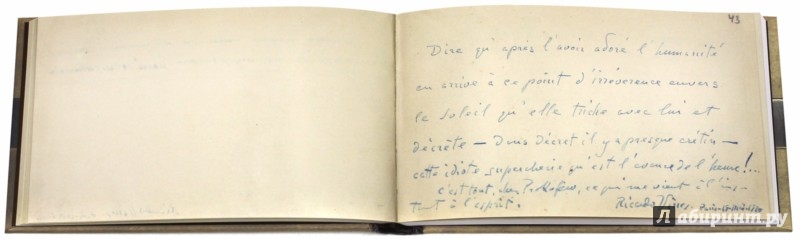 43
Dire qu'après l'avoir adoré l'humanité
en arrive à ce point d'irrévérence envers
le soleil qu'elle triche avec lui et
décrète — dans décret il y a presque crétin —
cette idiote supercherie qu'est l'avance de l'heure!...
c'est tout, cher Prokofieff, ce qui me vient à l'ins-
tant à l'esprit.
Ricardo Viñes
Лабиринт.ру